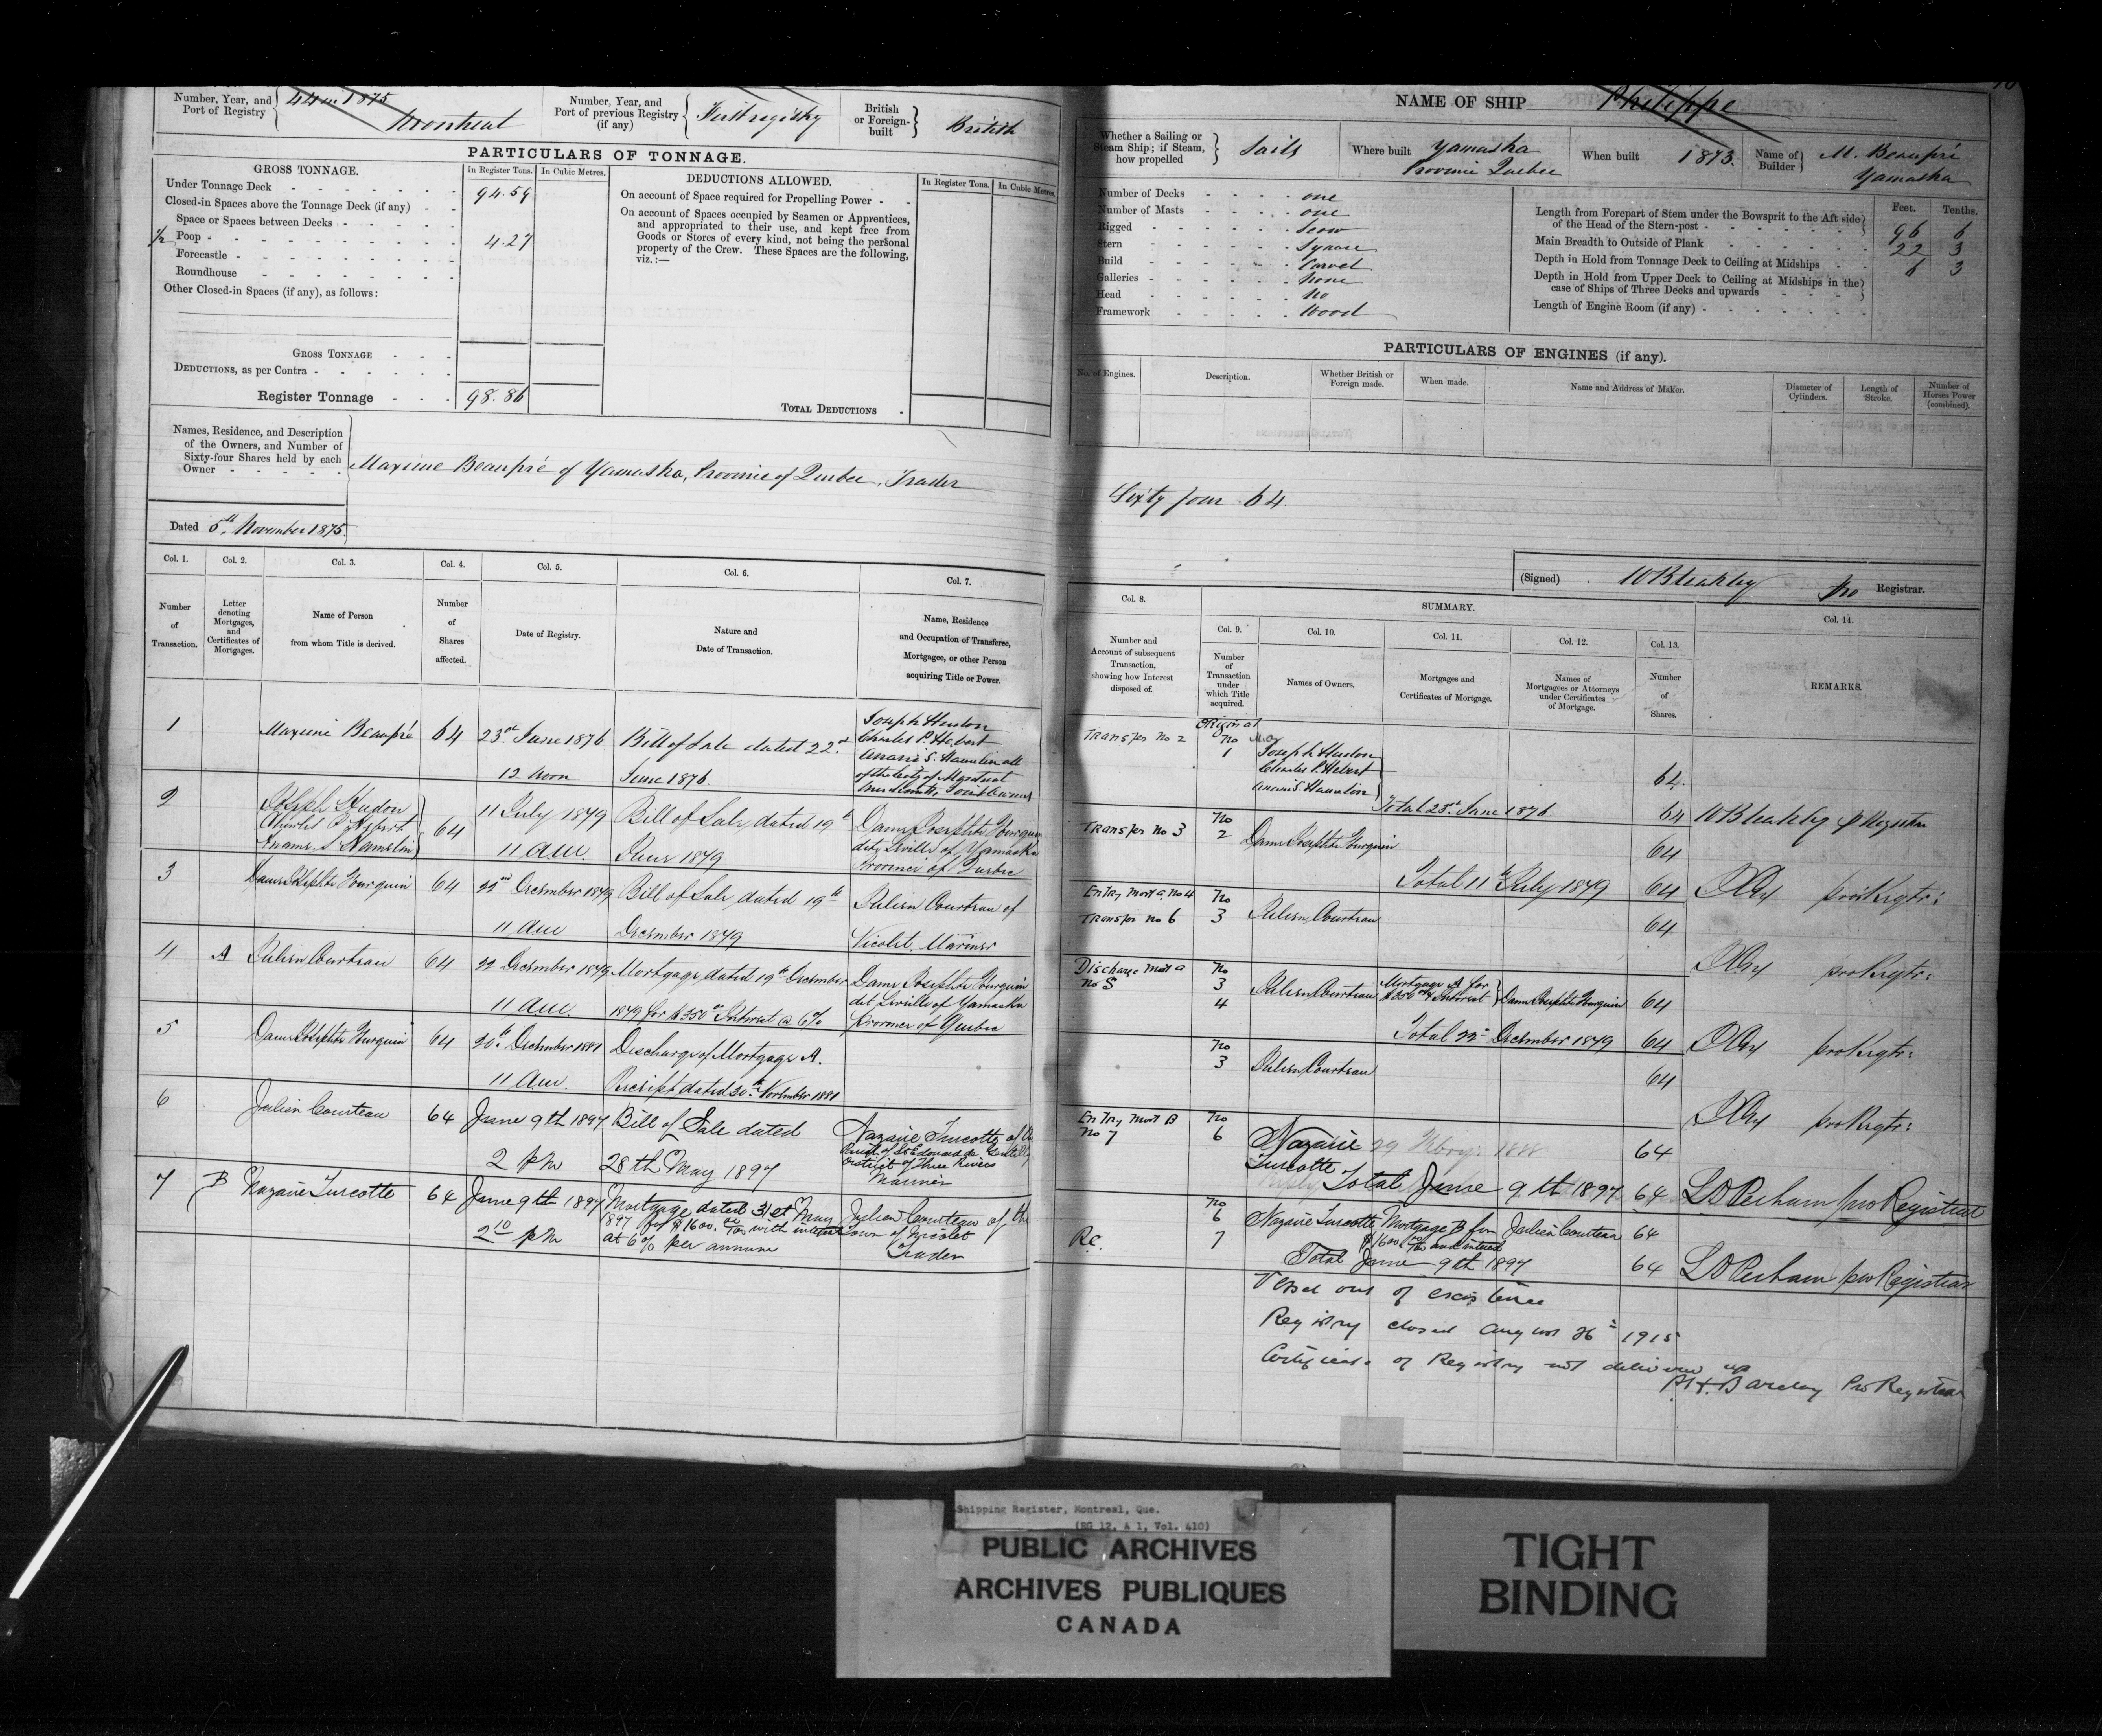 Number, Year, and Port of Registry 44 in 1875 Montreal
Number, Year, and Port of previous Registry (if any) First registry
British or Foreign-built British
PARTICULARS OF TONNAGE.
GROSS TONNAGE.
In Register Tons. In Cubic Metres.
Under Tonnage Deck 94.59
Closed-in Spaces above the Tonnage Deck (if any)
Space or Spaces between Decks
1/2 Poop 4.27
Forecastle
Roundhouse
Other Closed-in Spaces (if any), as follows:
GROSS TONNAGE
DEDUCTIONS, as per Contra
Register Tonnage 98.86
DEDUCTIONS ALLOWED.
In Register Tons. In Cubic Metres.
On account of Space required for Propelling Power
On account of Spaces occupied by Seamen or Apprentices,
and appropriated to their use, and kept free from
Goods or Stores of every kind, not being the personal
property of the Crew. These Spaces are the following,
viz.:—
TOTAL DEDUCTIONS
Names, Residence, and Description
of the Owners, and Number of
Sixty-four Shares held by each
Owner
Maxime Beaupré of Yamaska, Province of Quebec, Trader
Dated 5th November 1875.
Col. 1. Col. 2. Col. 3. Col. 4. Col. 5. Col. 6. Col. 7.
Number of Transaction.
Letter denoting Mortgages, and Certificates of Mortgages.
Name of Person from whom Title is derived.
Number of Shares affected.
Date of Registry.
Nature and Date of Transaction.
Name, Residence and Occupation of Transferee, Mortgagee, or other Person acquiring Title or Power.
1 Maxime Beaupré 64 23rd June 1876 Bill of Sale dated 22nd Joseph Hudon
Charles P. Hebert
12 noon June 1876. of the City of Montreal
Joint Owners
2 Joseph Hudon 11 July 1879 Bill of Sale, dated 19th Dame Josephte Fourquin
Charles P. Hebert 64 dite Leveille of Yamaska
11 am. June 1879 Province of Quebec
3 Dame Josephte Fourquin 64 22nd December 1879 Bill of Sale, dated 19th Julien Courteau of
11 am December 1879 Nicolet, Mariner
4 A Julien Courteau 64 22 December 1879 Mortgage dated 19th December Dame Josephte Fourquin
11 am. 1879 for $350 Interest @ 6% Province of Quebec
5 Dame Josephte Fourquin 64 20th December 1881 Discharge of Mortgage A.
11 am. Receipt dated 30th November 1881
6 Julien Courteau 64 June 9th 1897 Bill of Sale dated Nazaire Turcotte of the
District of Three Rivers
2 pm 28th May 1897 Mariner
7 B Nazaire Turcotte 64 June 9th 1897 Mortgage dated 31st May Julien Courteau of the
1897 for $1600 00/100 with interest Town of Nicolet
2 10 pm at 6% per annum Trader
NAME OF SHIP Philippe
Whether a Sailing or Steam Ship; if Steam, how propelled Sails
Where built Yamaska Province Quebec
When built 1873.
Name of Builder M. Beaupré Yamaska
Number of Decks one
Number of Masts one
Rigged Scow
Stern Square
Build Carvel
Galleries None
Head No
Framework Wood
Feet. Tenths.
Length from Forepart of Stem under the Bowsprit to the Aft side
of the Head of the Stern-post 96 6
Main Breadth to Outside of Plank 22 3
Depth in Hold from Tonnage Deck to Ceiling at Midships 6 3
Depth in Hold from Upper Deck to Ceiling at Midships in the
case of Ships of Three Decks and upwards
Length of Engine Room (if any)
PARTICULARS OF ENGINES (if any).
No. of Engines. Description. Whether British or Foreign made. When made. Name and Address of Maker. Diameter of Cylinders. Length of Stroke. Number of Horses Power (combined).
Sixty four 64.
(Signed) W Bleakley pro Registrar.
Col. 8. SUMMARY. Col. 14.
Col. 9. Col. 10. Col. 11. Col. 12. Col. 13.
Number and Account of subsequent Transaction, showing how Interest disposed of.
Number of Transaction under which Title acquired.
Names of Owners.
Mortgages and Certificates of Mortgage.
Names of Mortgagees or Attorneys under Certificates of Mortgage.
Number of Shares.
REMARKS.
Original
Transfer No 2 No 1 Joseph Hudon
Charles P. Hebert 64.
Total 23rd June 1876. 64 W Bleakley p Registrar
Transfer No 3 No 2 Dame Josephte Fourquin 64
Total 11th July 1879 64 pro Rgtr:
Entry Mortg A No 4 No
Transfer No 6 3 Julien Courteau 64
pro Rgtr:
Discharge Mort A No 5 No 3 4 Julien Courteau Mortgage A for $350 & Interest Dame Josephte Fourquin 64
Total 22nd December 1879 64 pro Rgtr:
No 3 Julien Courteau 64
pro Rgtr:
Entry Mort B No 7 No 6 Nazaire Turcotte 64
Total June 9th 1897 64 L D Perham pro Registrar
No 6 7 Nazaire Turcotte Mortgage B for $1600 00/100 and interest Julien Courteau 64
Total June 9th 1897 64 L D Perham pro Registrar
Vessel out of existence
Registry closed August 26th 1915
Certificate of Registry not delivered up
Barclay Pro Registrar
Shipping Register, Montreal, Que.
(RG 12, A 1, Vol. 410)
PUBLIC ARCHIVES
ARCHIVES PUBLIQUES
CANADA
TIGHT
BINDING